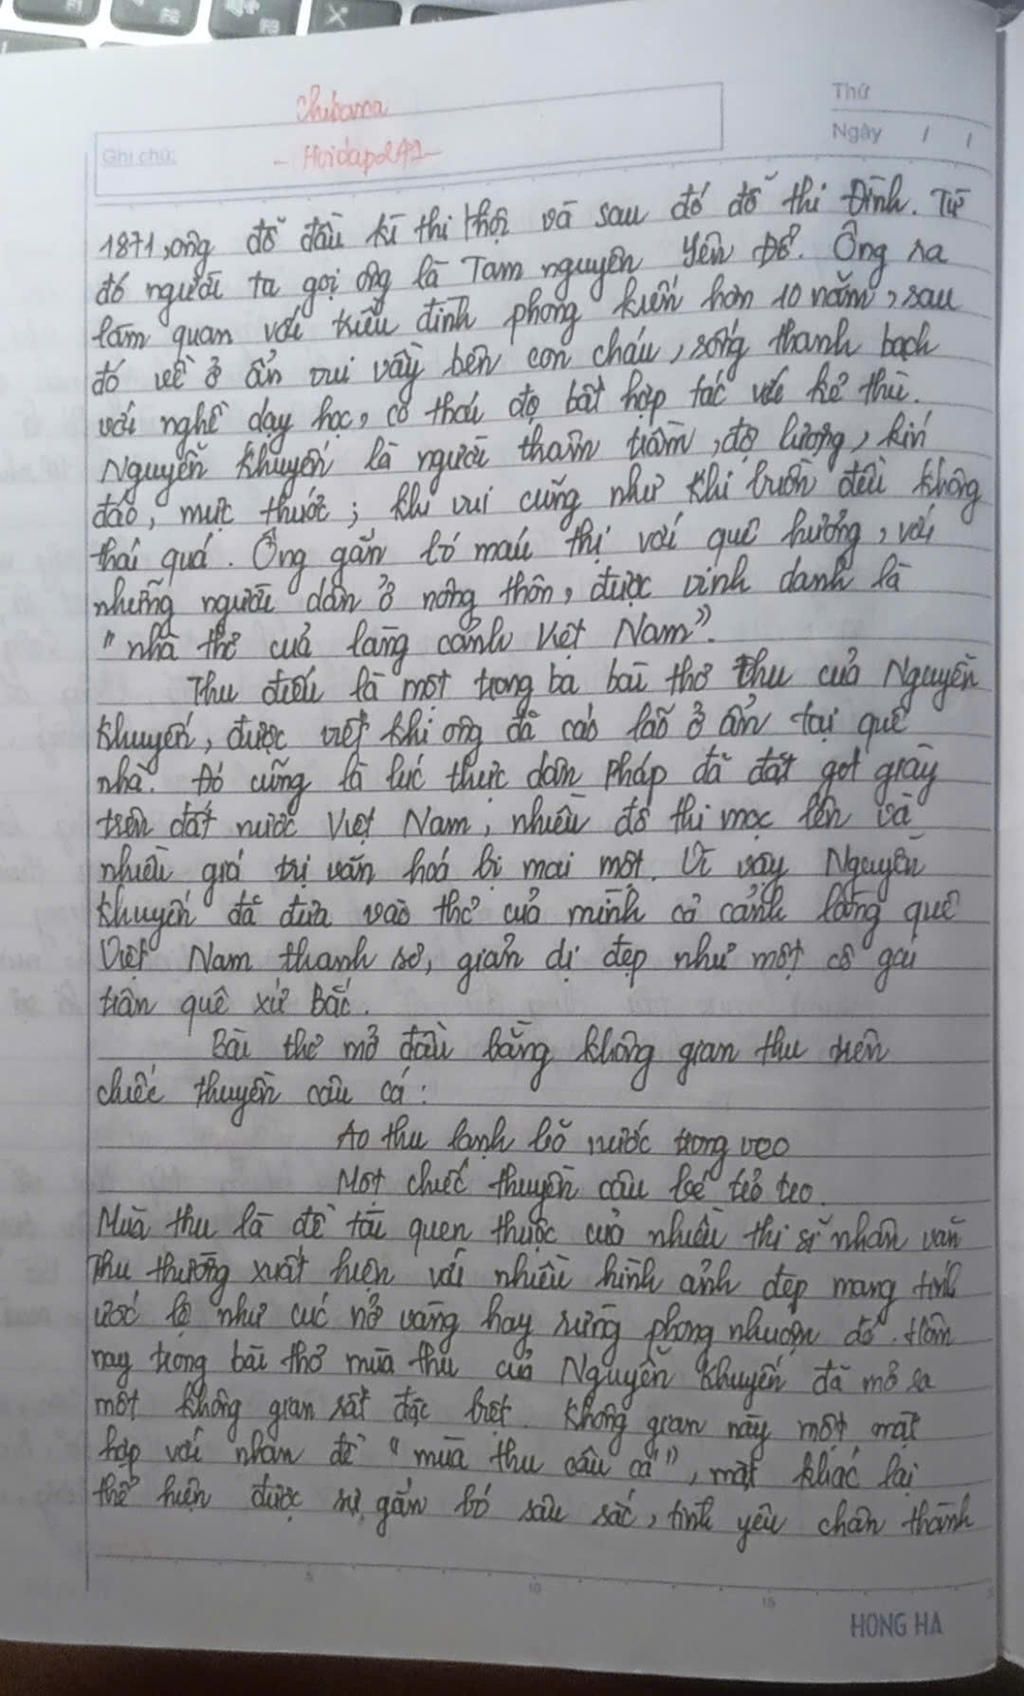 Chibana
Thứ
Ghi chú:
- Hoidap247-
Ngày / /
1871, ông đỗ đầu kì thi Hội và sau đó đỗ thi Đình. Từ
đó người ta gọi ông là Tam nguyên Yên Đổ. Ông ra
làm quan với triều đình phong kiến hơn 10 năm, sau
đó về ở ẩn vui vầy bên con cháu, sống thanh bạch
với nghề dạy học, có thái độ bất hợp tác với kẻ thù.
Nguyễn Khuyến là người thâm trầm, độ lượng, kín
đáo, mực thước; khi vui cũng như khi buồn đều không
thái quá. Ông gắn bó máu thị với quê hương, với
những người dân ở nông thôn, được vinh danh là
"nhà thơ của làng cảnh Việt Nam".
Thu điếu là một trong ba bài thơ thu của Nguyễn
Khuyến, được viết khi ông đã cáo lão ở ẩn tại quê
nhà. Đó cũng là lúc thực dân Pháp đã đặt gót giày
trên đất nước Việt Nam, nhiều đô thị mọc lên và
nhiều giá trị văn hoá bị mai một. Vì vậy Nguyễn
Khuyến đã đưa vào thơ của mình cả cảnh làng quê
Việt Nam thanh sơ, giản dị đẹp như một cô gái
trân quê xứ Bắc.
Bài thơ mở đầu bằng không gian thu trên
chiếc thuyền câu cá:
Ao thu lạnh lẽo nước trong veo
Một chiếc thuyền câu bé tẻo teo.
Mùa thu là đề tài quen thuộc của nhiều thi sĩ nhân văn
Thu thường xuất hiện với nhiều hình ảnh đẹp mang tính
ước lệ như cúc nở vàng hay rừng phong nhuộm đỏ. Hôm
nay trong bài thơ mùa thu của Nguyễn Khuyến đã mở ra
một không gian rất đặc biệt. Không gian này một mặt
hợp với nhan đề "mùa thu câu cá", mặt khác lại
thể hiện được sự gắn bó sâu sắc, tình yêu chân thành
5 10 15
HONG HA